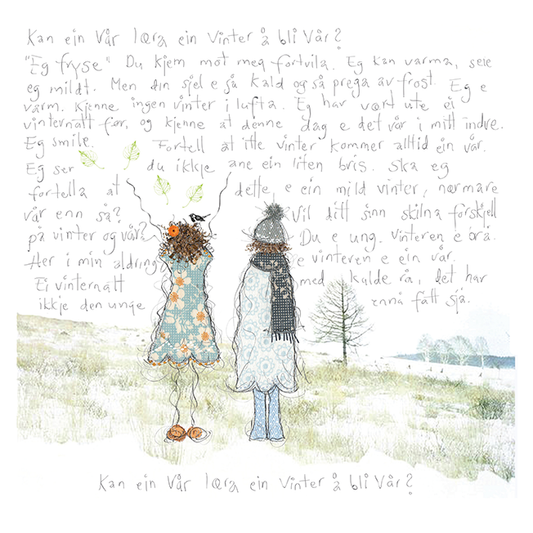 Kan ein Vår læra ein Vinter å bli Vår?
"Eg fryse" Du kjem mot meg fortvila. Eg kan varma, seie
eg mildt. Men din sjel e så kald og så prega av frost. Eg e
varm. Kjenne ingen vinter i lufta. Eg har vært ute ei
vinternatt før, og kjenne at denne dag e det vår i mitt indre.
Eg smile. Fortell at itte vinter kommer alltid ein vår.
Eg ser du ikkje ane ein liten bris. Ska eg
fortella at dette e ein mild vinter, nærmare
vår enn så? Vil ditt sinn skilna forskjell
på vinter og vår? Du e ung. Vinteren e brå.
Her i min aldring e vinteren e ein vår.
Ei vinternatt med kulde rå, det har
ikkje den unge ennå fått sjå.
Kan ein Vår læra ein Vinter å bli Vår?